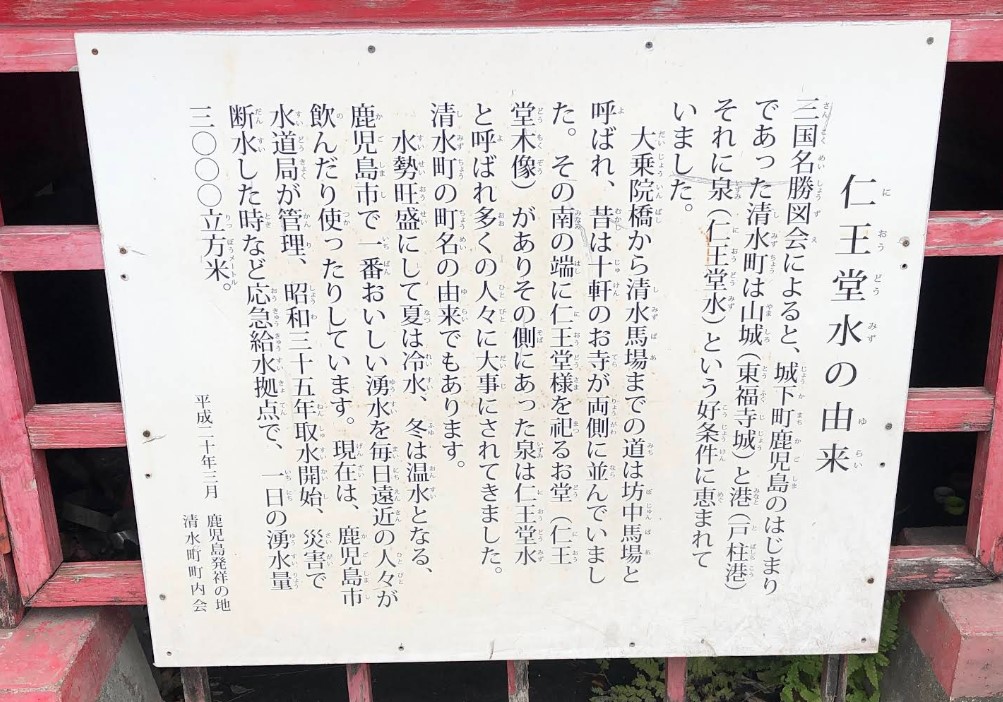 仁王堂水の由来
三国名勝図会によると、城下町鹿児島のはじまり
であった清水町は山城(東福寺城)と港(戸柱港)
それに泉(仁王堂水)という好条件に恵まれて
いました。
大乗院橋から清水馬場までの道は坊中馬場と
呼ばれ、昔は十軒のお寺が両側に並んでいまし
た。その南の端に仁王堂様を祀るお堂(仁王
堂木像)がありその側にあった泉は仁王堂水
と呼ばれ多くの人々に大事にされてきました。
清水町の町名の由来でもあります。
水勢旺盛にして夏は冷水、冬は温水となる、
鹿児島市で一番おいしい湧水を毎日遠近の人々が
飲んだり使ったりしています。現在は、鹿児島市
水道局が管理、昭和三十五年取水開始、災害で
断水した時など応急給水拠点で、一日の湧水量
三〇〇〇立方米。
平成二十年三月
鹿児島発祥の地
清水町町内会